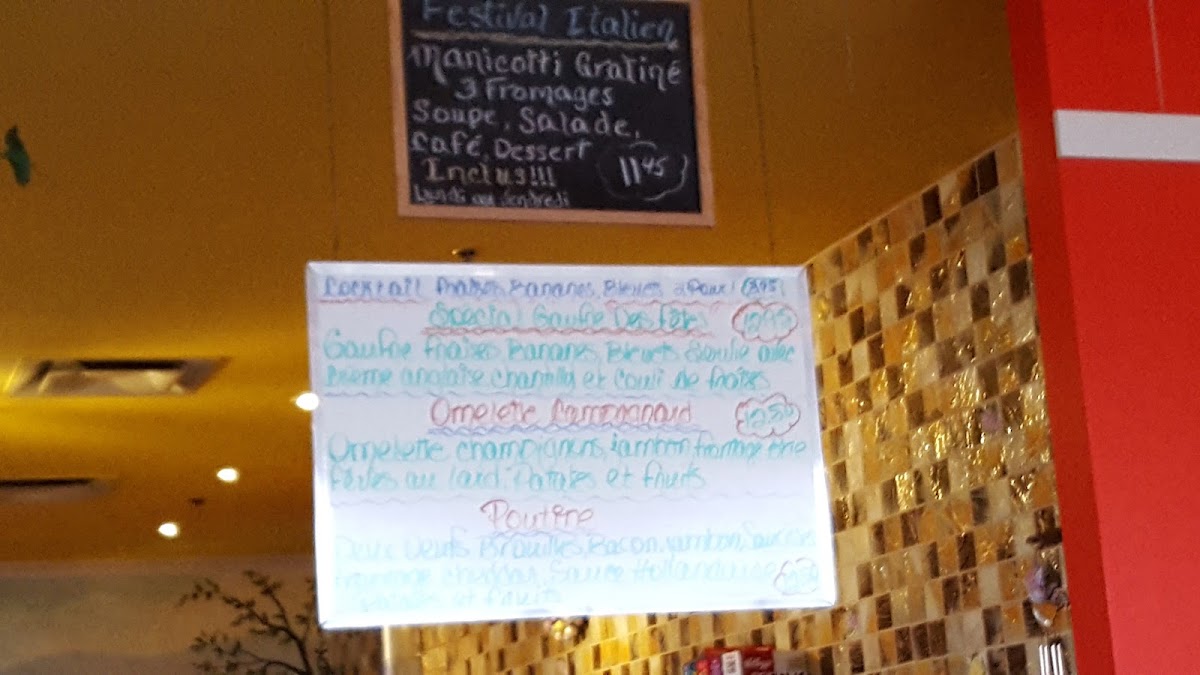 Festival Italien
Manicotti Gratiné
3 Fromages
Soupe, Salade,
Café, Dessert
Inclus!!! 11 45
Lundi au Vendredi
Cocktail Bananes, Bleuets
Special Gaufre Des Fêtes 12.95
Gaufre fraises, Bananes, Bleuets avec
creme anglaise, chantilly et Couli de fraises
Omelette Campagnard 12.50
Omelette champignons, jambon, fromage
fèves au lard, Patates et fruits
Poutine
Deux Oeufs Brouillés, Bacon, jambon,
fromage cheddar, Sauce Hollandaise
Patates et fruits